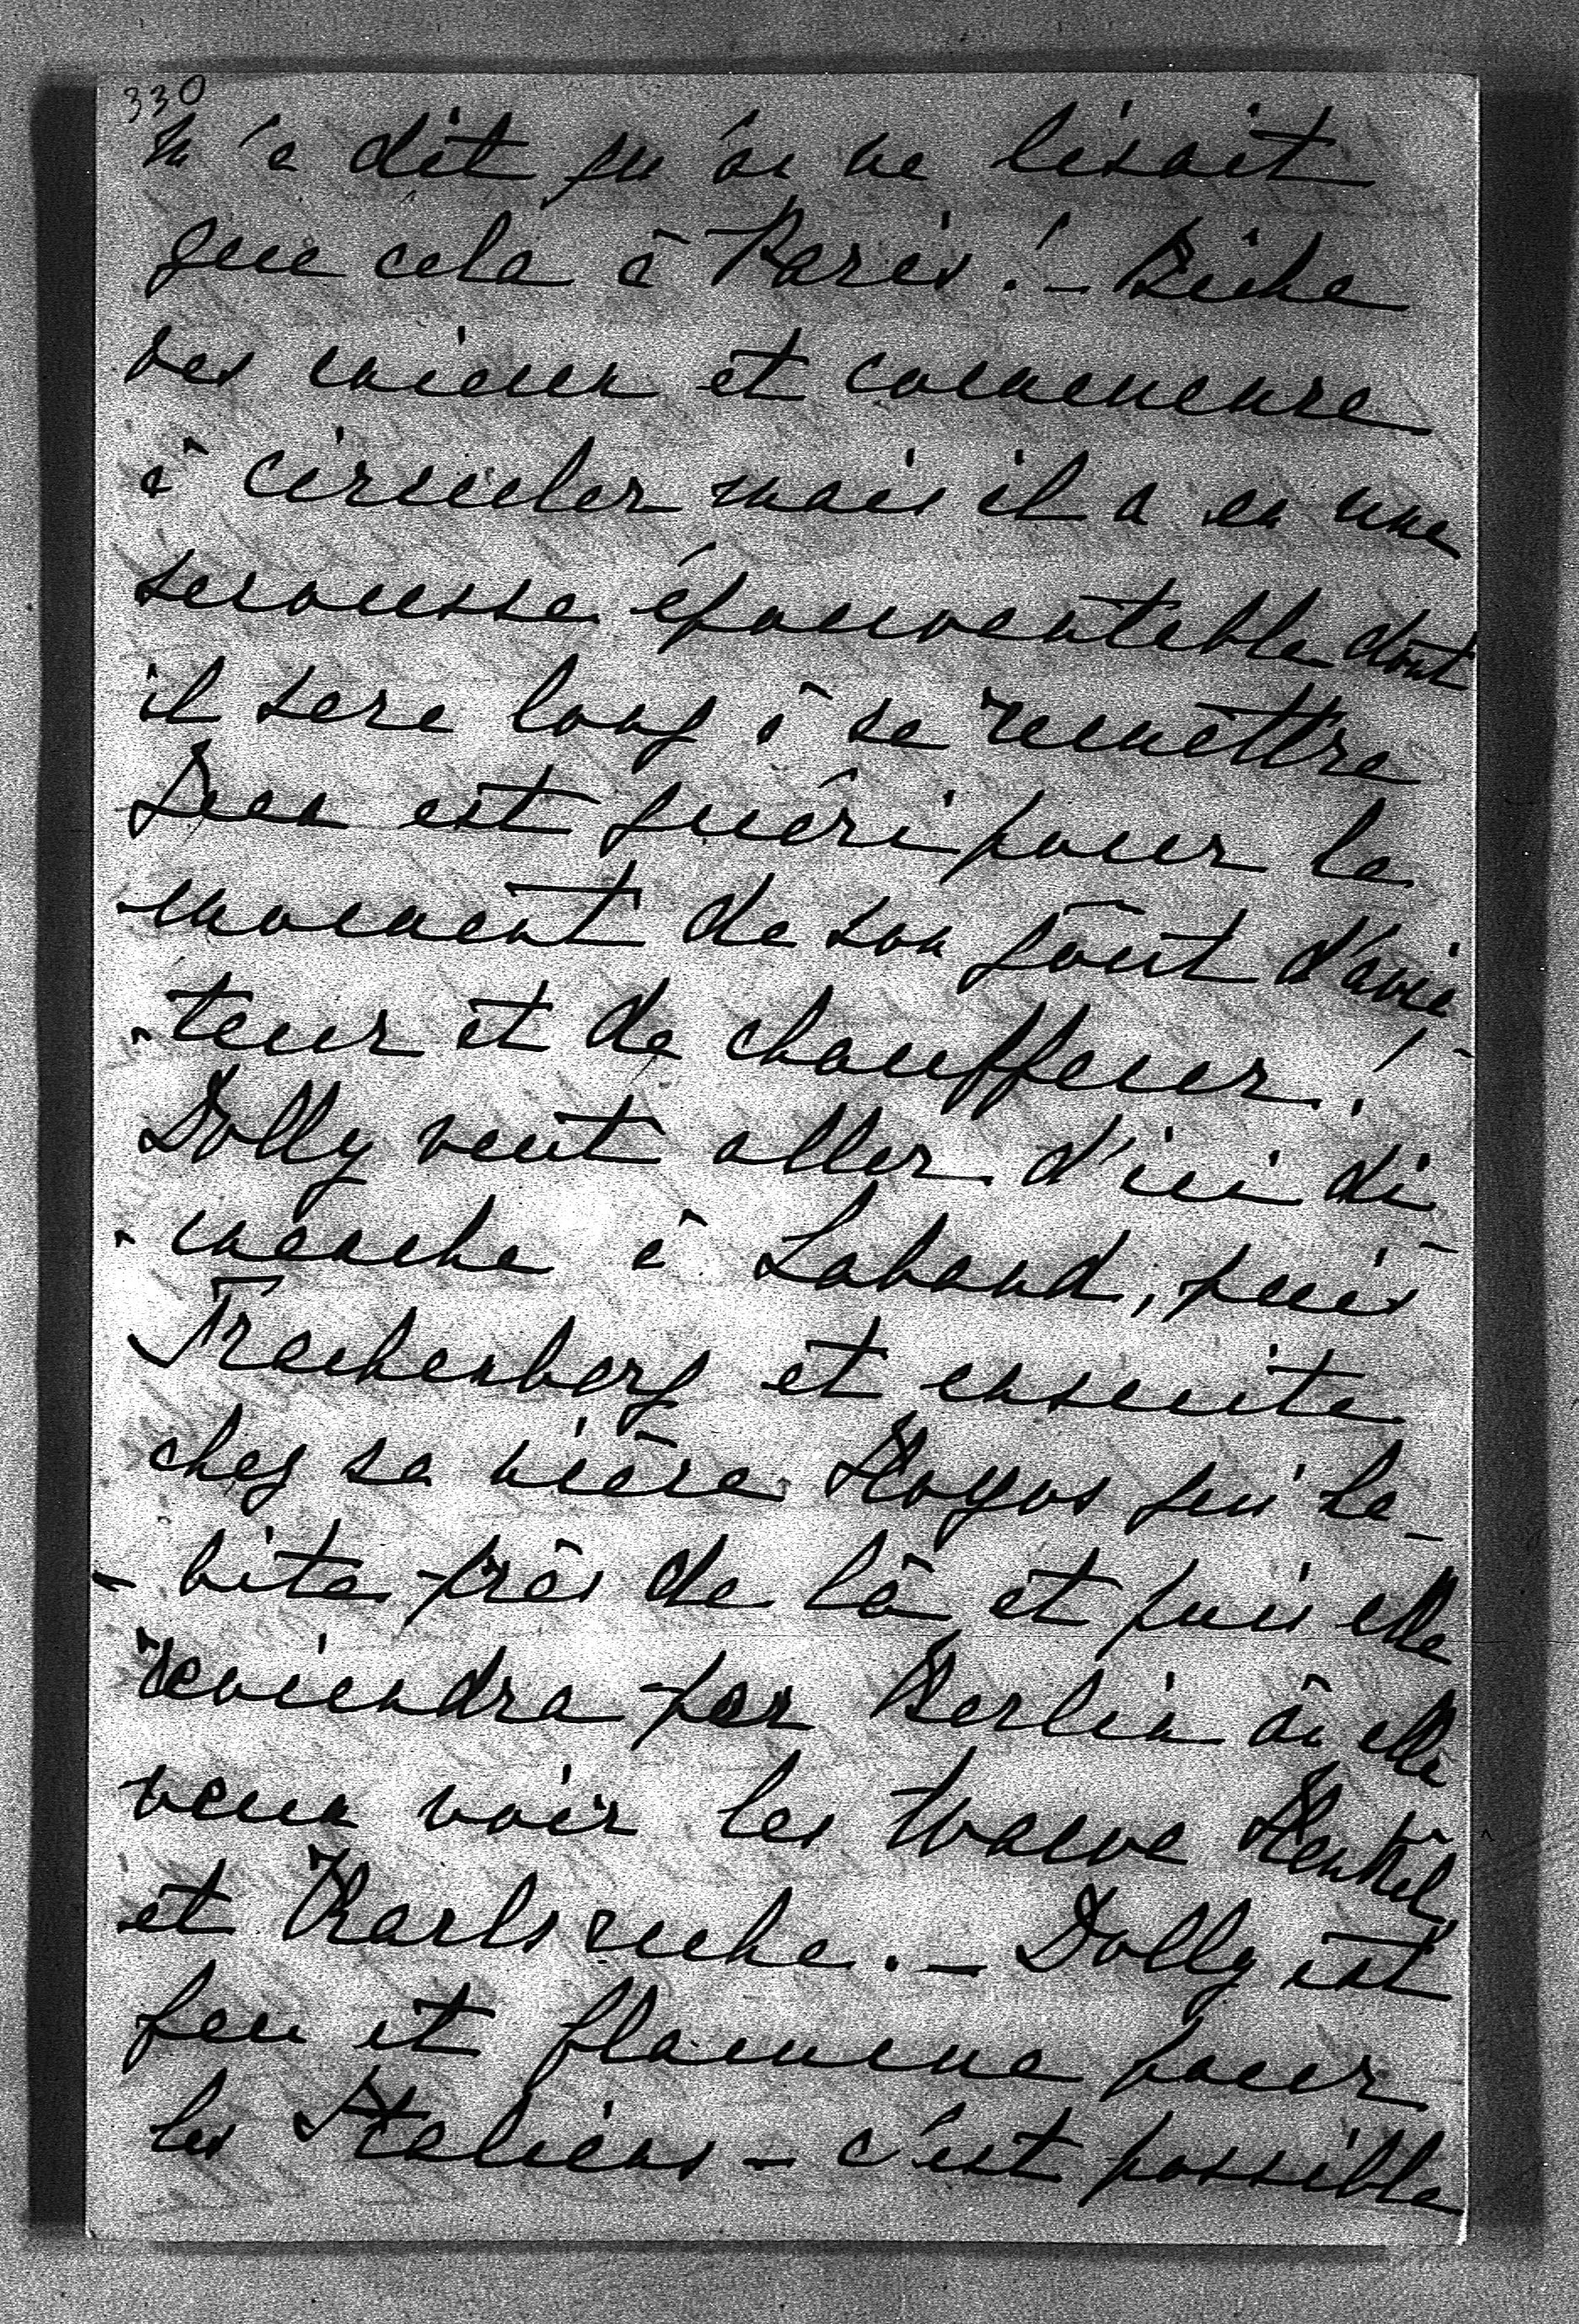 330
m'a dit qu'on ne lisait
que cela à Paris! - Biche
va mieux et commence
à circuler mais il a eu une
secousse épouvantable dont
il sera long à se remettre
Jean est guéri pour le
moment de son goût d'avia-
-teur et de chauffeur! -
Dolly veut aller d'ici di-
-manche à Laband, puis
Trachenberg et ensuite
chez sa nièce Hoyos qui ha-
-bite près de là et puis elle
reviendra par Berlin où elle
veut voir les Henkel,
et Karlsruhe. - Dolly est
feu et flamme pour
les Italiens - c'est possible